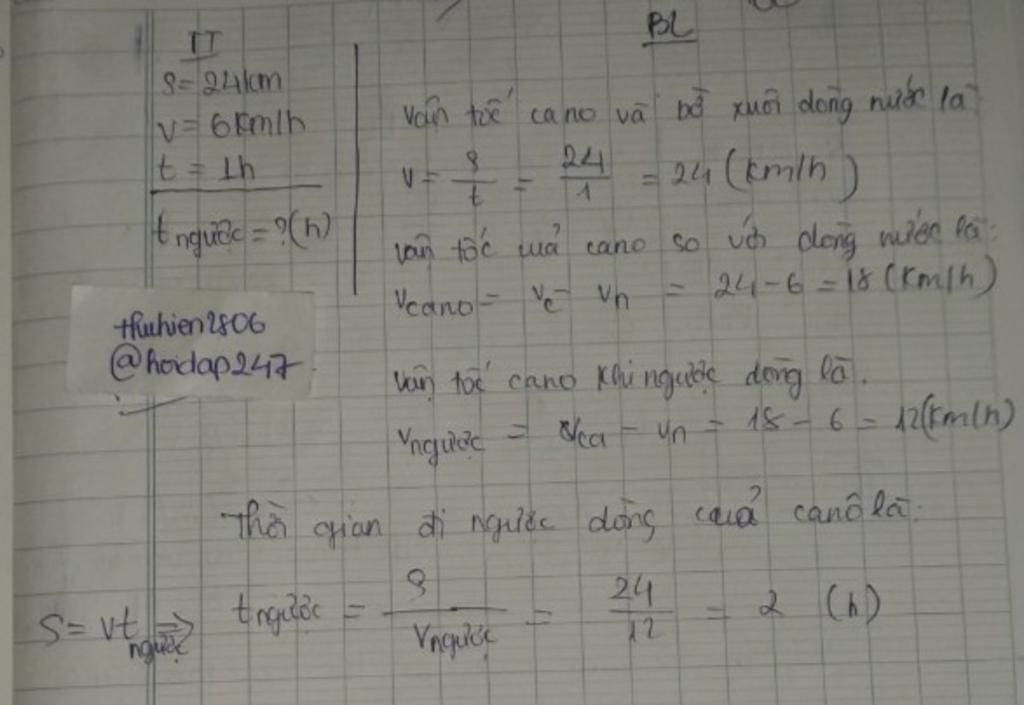 TT
S = 24km
v = 6km/h
t = 1h
t ngược = ?(h)
thuhien2806
@hoidap247
BL
Vận tốc cano và bờ xuôi dòng nước là
v = S/t = 24/1 = 24 (km/h)
vận tốc của cano so với dòng nước là:
vcano = vc - vn = 24 - 6 = 18 (km/h)
Vận tốc cano khi ngược dòng là.
vngược = vca - vn = 18 - 6 = 12(km/h)
Thời gian đi ngược dòng của canô là:
S = vt ngược => t ngược = S/vngược = 24/12 = 2 (h)